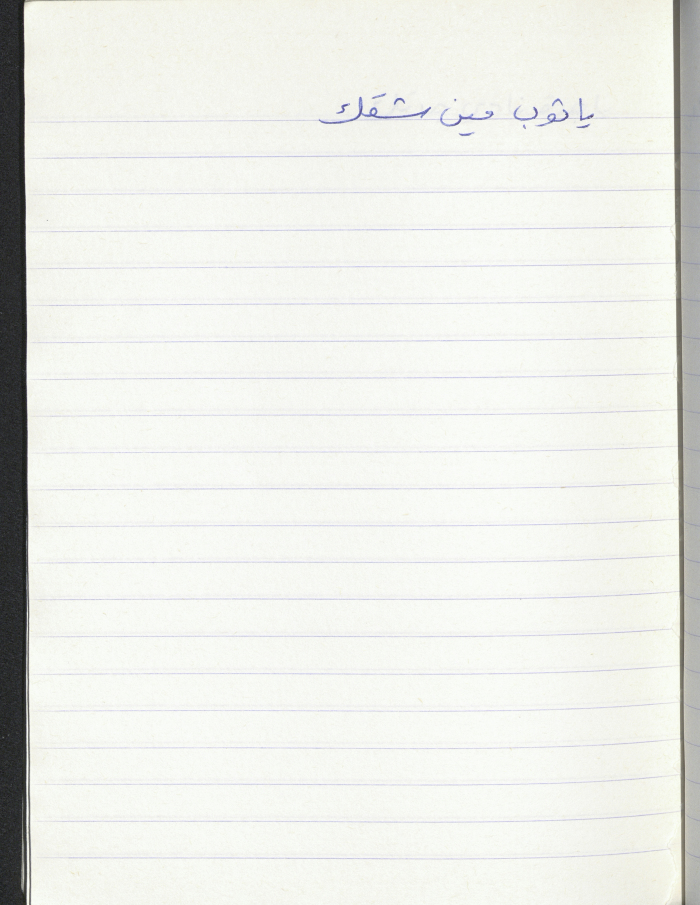 يا توب مين شقك